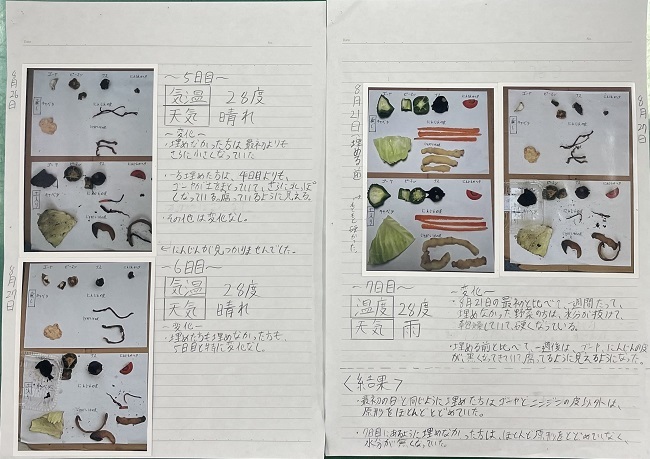 8月26日
〜5日目〜
気温 28度
天気 晴れ
〜変化〜
・埋めなかった方は最初よりも
さらに小さくなっていた。
・一方埋めた方は、4日目よりも、
その他は変化なし。
←にんじんが見つかりませんでした。
8月27日
〜6日目〜
気温 28度
天気 晴れ
〜変化〜
・埋めた方も埋めなかった方も、
5日目と特に変化なし。
8月21日
〜7日目〜
温度 28度
天気 雨
〜変化〜
・8月21日の最初と比べて、一週間たって、
埋めなかった野菜の方は、水分が抜けて、
乾燥していて、硬くなっている。
・埋める前と比べて、一週後は、
が、黒くなってきていて、腐ってるように見えるようになった。
<結果>
・最初の日と同じように埋めた方はゴーヤとニンジンの皮以外は、
原形をほとんどとどめていた。
・7日目にあるように埋めなかった方は、ほとんど原形をとどめていなく、
水分が無くなっていた。